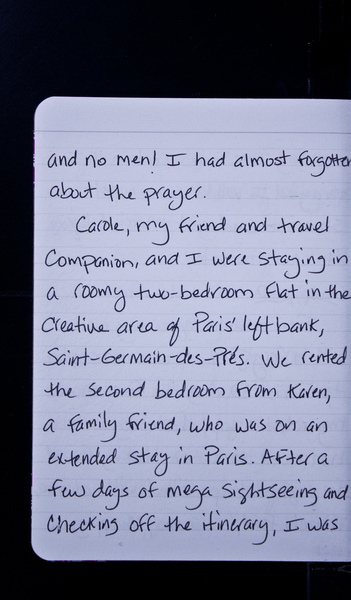 and no men! I had almost forgotten
about the prayer.
Carole, my friend and travel
Companion, and I were staying in
a roomy two-bedroom flat in the
Creative area of Paris' left bank,
Saint-Germain-des-Prés. We rented
the second bedroom from Karen,
a family friend, who was on an
extended stay in Paris. After a
few days of mega sightseeing and
Checking off the itinerary, I was